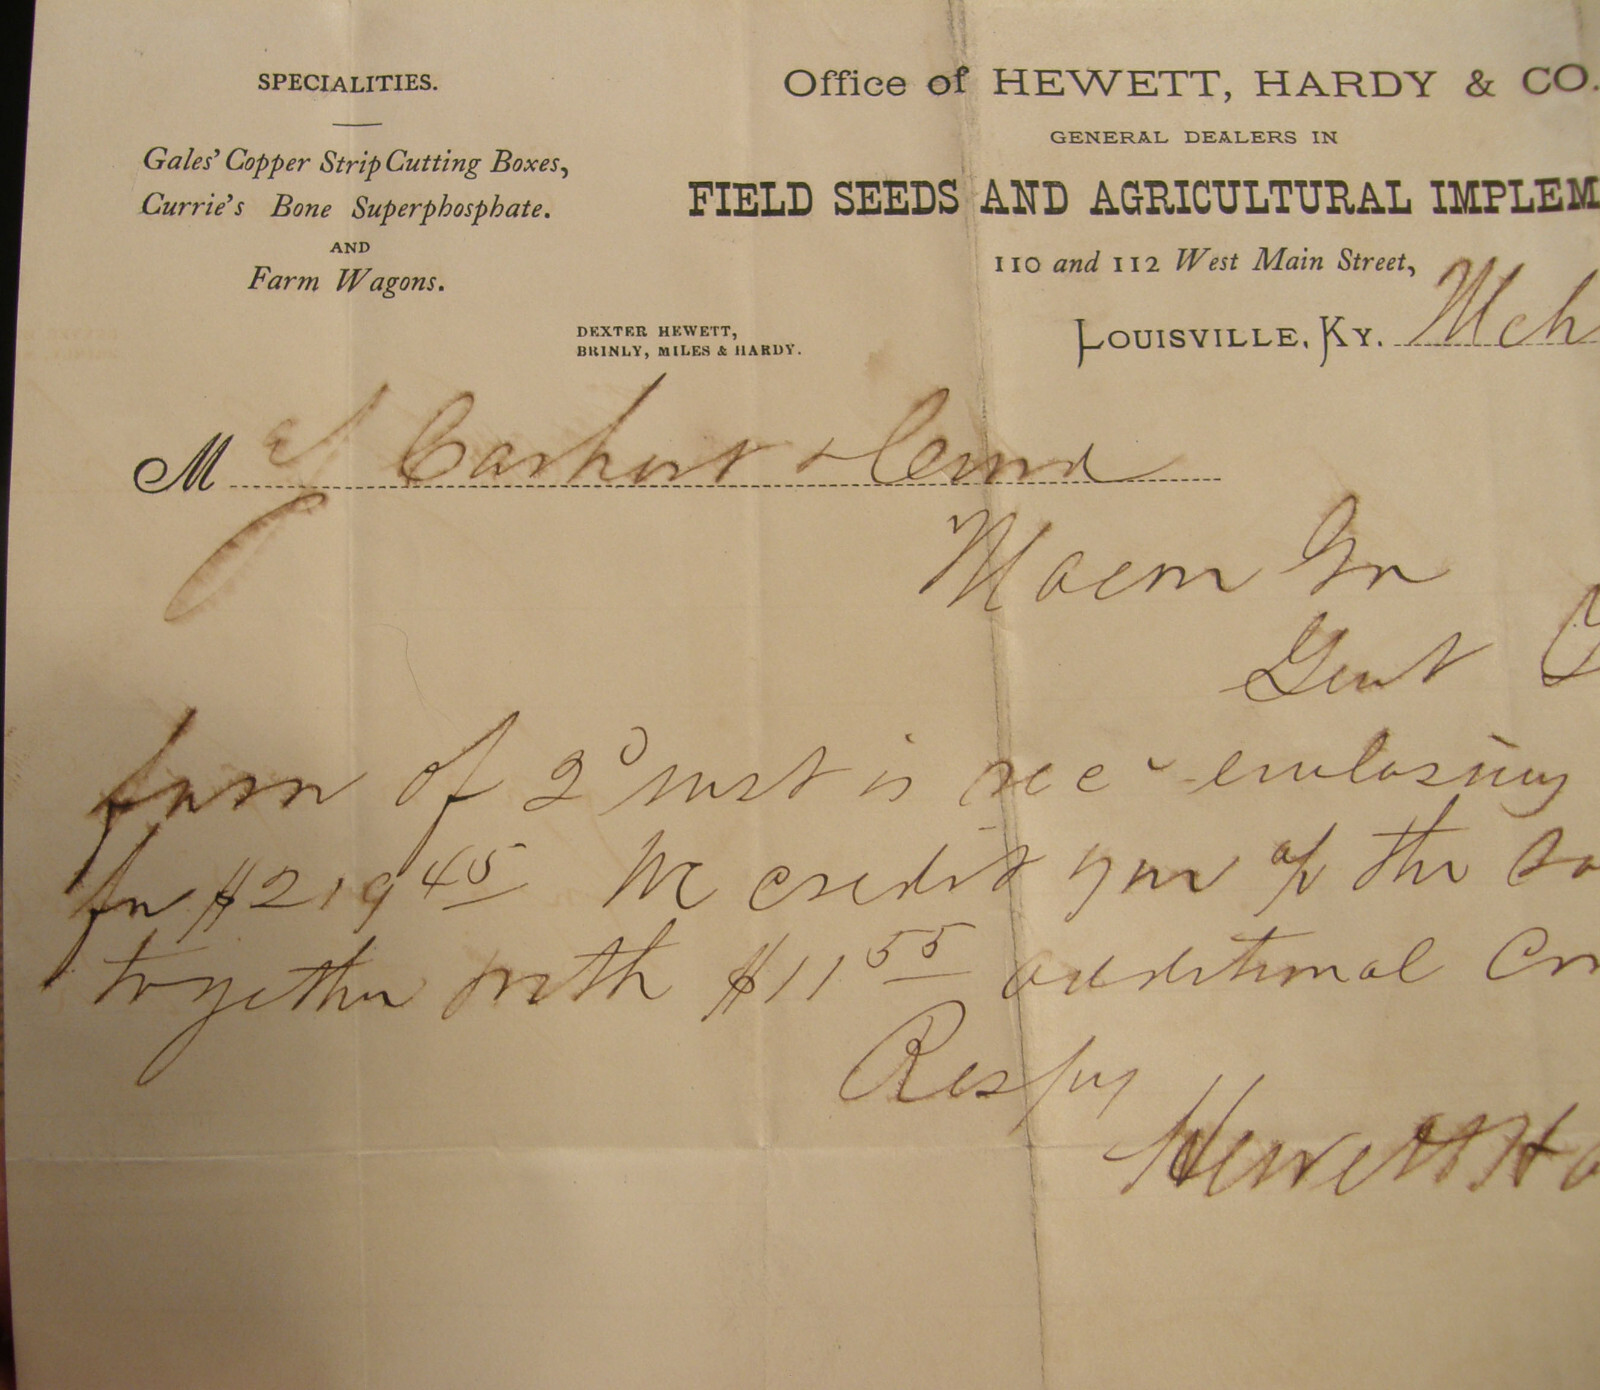 SPECIALITIES.
Gales' Copper Strip Cutting Boxes,
Currie's Bone Superphosphate.
AND
Farm Wagons.
Office of HEWETT, HARDY & CO.
GENERAL DEALERS IN
FIELD SEEDS AND AGRICULTURAL IMPLEM
110 and 112 West Main Street,
LOUISVILLE, KY. Mch
DEXTER HEWETT,
BRINLY, MILES & HARDY.
M J Carhart & Curd
Macon Ga
Gent
favor of 2d inst is recd enclosing
for $219 45 We credit your a/c the
together with $11 55 additional
Respy
Hewett Ha